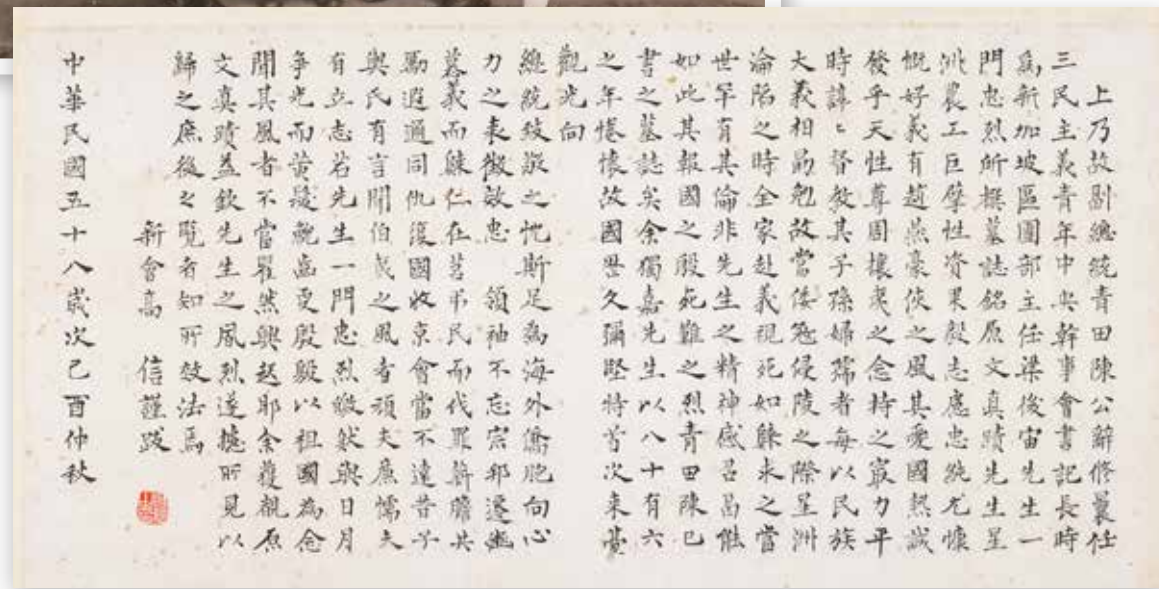 上乃故副總統青田陳公辭修曩任
三民主義青年中央幹事會書記長時
為新加坡區團部主任梁後宙先生一
門忠烈所撰墓誌銘原文真蹟先生星
洲農工巨擘性資果毅志慮忠純尤慷
慨好義有趙燕豪俠之風其愛國熱誠
發乎天性尊周攘夷之念持之最力平
時諄〻督教其子孫婦孺者每以民族
大義相勗勉故當倭寇侵陵之際星洲
淪陷之時全家赴義視死如歸求之當
世罕有其倫非先生之精神感召曷能
如此其報國之殷死難之烈青田陳已
書之墓誌矣余獨嘉先生以八十有六
之年惓懷故國歷久彌堅特首次來臺
觀光向
總統致敬之忱斯足為海外僑胞向心
力之表徵效忠 領袖不忘宗邦遷豳
慕義而歸仁在莒弔民而伐罪薪膽共
勵遐邇同仇復國收京會當不遠昔子
輿氏有言聞伯夷之風者頑夫廉懦夫
有立志若先生一門忠烈皦然與日月
爭光而黃髮鮐齒更殷殷以祖國為念
聞其風者不當瞿然興起耶余獲覩原
文真蹟益欽先生之風烈遂攄所見以
歸之庶後之覽者知所效法焉
新會高 信謹跋
中華民國五十八歲次己酉仲秋